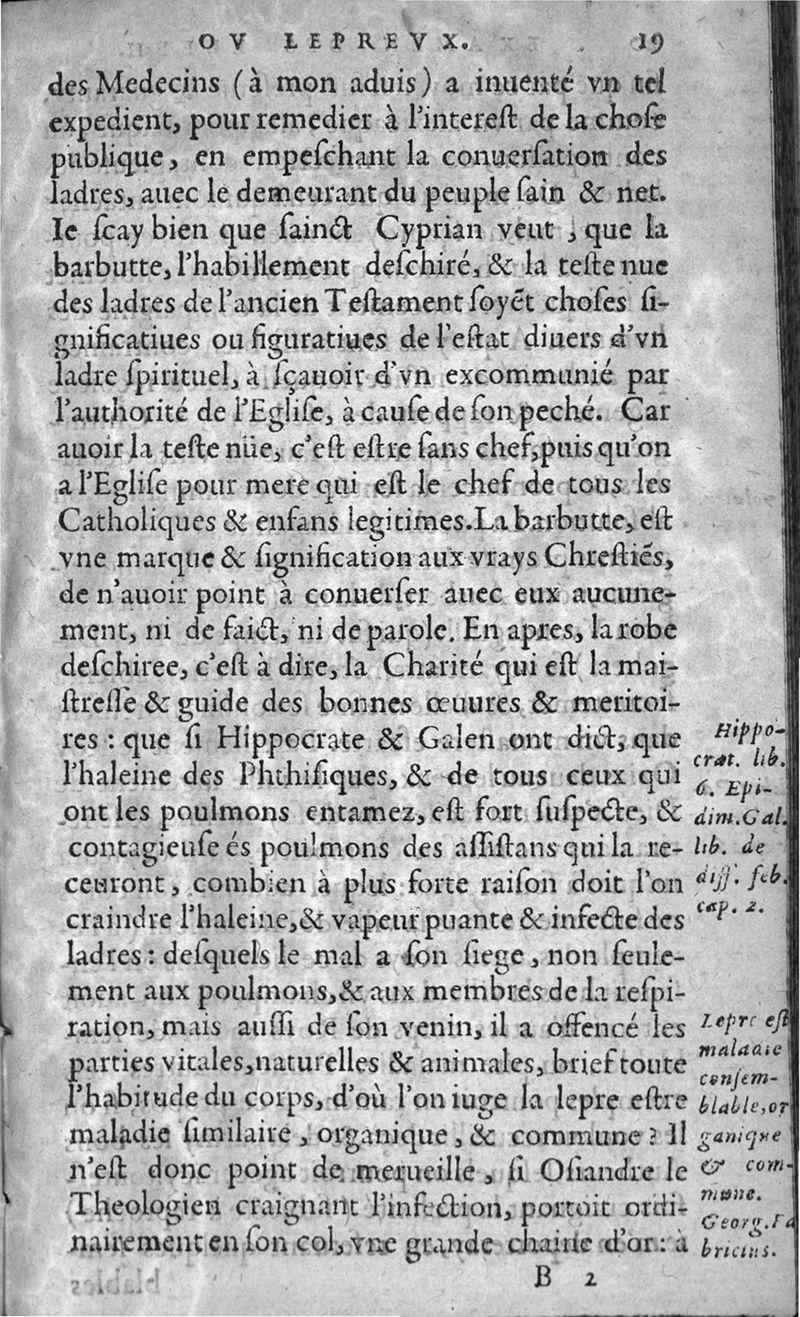 OV LEPREVX. 19
des Medecins (à mon aduis) a inuenté vn tel
expedient, pour remedier à l'intereſt de la choſe
publique, en empeſchant la conuerſation des
ladres, auec le demeurant du peuple ſain & net.
Ie ſcay bien que ſainct Cyprian veut, que la
barbutte, l'habillement deſchiré, & la teſte nue
des ladres de l'ancien Teſtament ſoyẽt choſes ſi-
gnificatiues ou figuratiues de l'eſtat diuers d'vn
ladre ſpirituel, à ſçauoir d'vn excommunié par
l'authorité de l'Egliſe, à cauſe de ſon peché. Car
auoir la teſte nüe, c'eſt eſtre ſans chef, puis qu'on
a l'Egliſe pour mere qui eſt le chef de tous les
Catholiques & enfans legitimes. La barbutte, eſt
vne marque & ſignification aux vrays Chreſtiẽs,
de n'auoir point à conuerſer auec eux aucune-
ment, ni de faict, ni de parole. En apres, la robe
deſchiree, c'eſt à dire, la Charité qui eſt la mai-
ſtreſſe & guide des bonnes œuures & meritoi-
res : que ſi Hippocrate & Galen ont dict, que
l'haleine des Phthiſiques, & de tous ceux qui
ont les poulmons entamez, eſt fort ſuſpecte, &
contagieuſe és poulmons des aſſiſtans qui la re-
ceuront, combien à plus forte raiſon doit l'on
craindre l'haleine, & vapeur puante & infecte des
ladres : deſquels le mal a ſon ſiege, non ſeule-
ment aux poulmons, & aux membres de la reſpi-
ration, mais auſſi de ſon venin, il a offencé les
parties vitales, naturelles & animales, brief toute
l'habitude du corps, d'où l'on iuge la lepre eſtre
maladie ſimilaire, organique, & commune ? Il
n'eſt donc point de merueille, ſi Oſiandre le
Theologien craignant l'infection, portoit ordi-
nairement en ſon col, vne grande chaine d'or : à
B 2
Hippo-
crat. lib.
6. Epi-
dim. Gal.
lib. de
diff. feb.
cap. 2.
Lepre eſt
maladie
conſem-
blable, or
ganique
& com-
mune.
Georg. Fa
bricius.